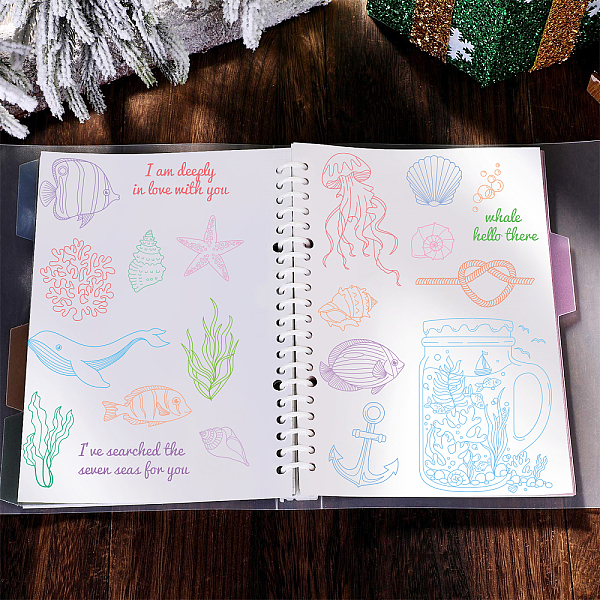 I am deeply
in love with you
I've searched the
seven seas for you
whale
hello there